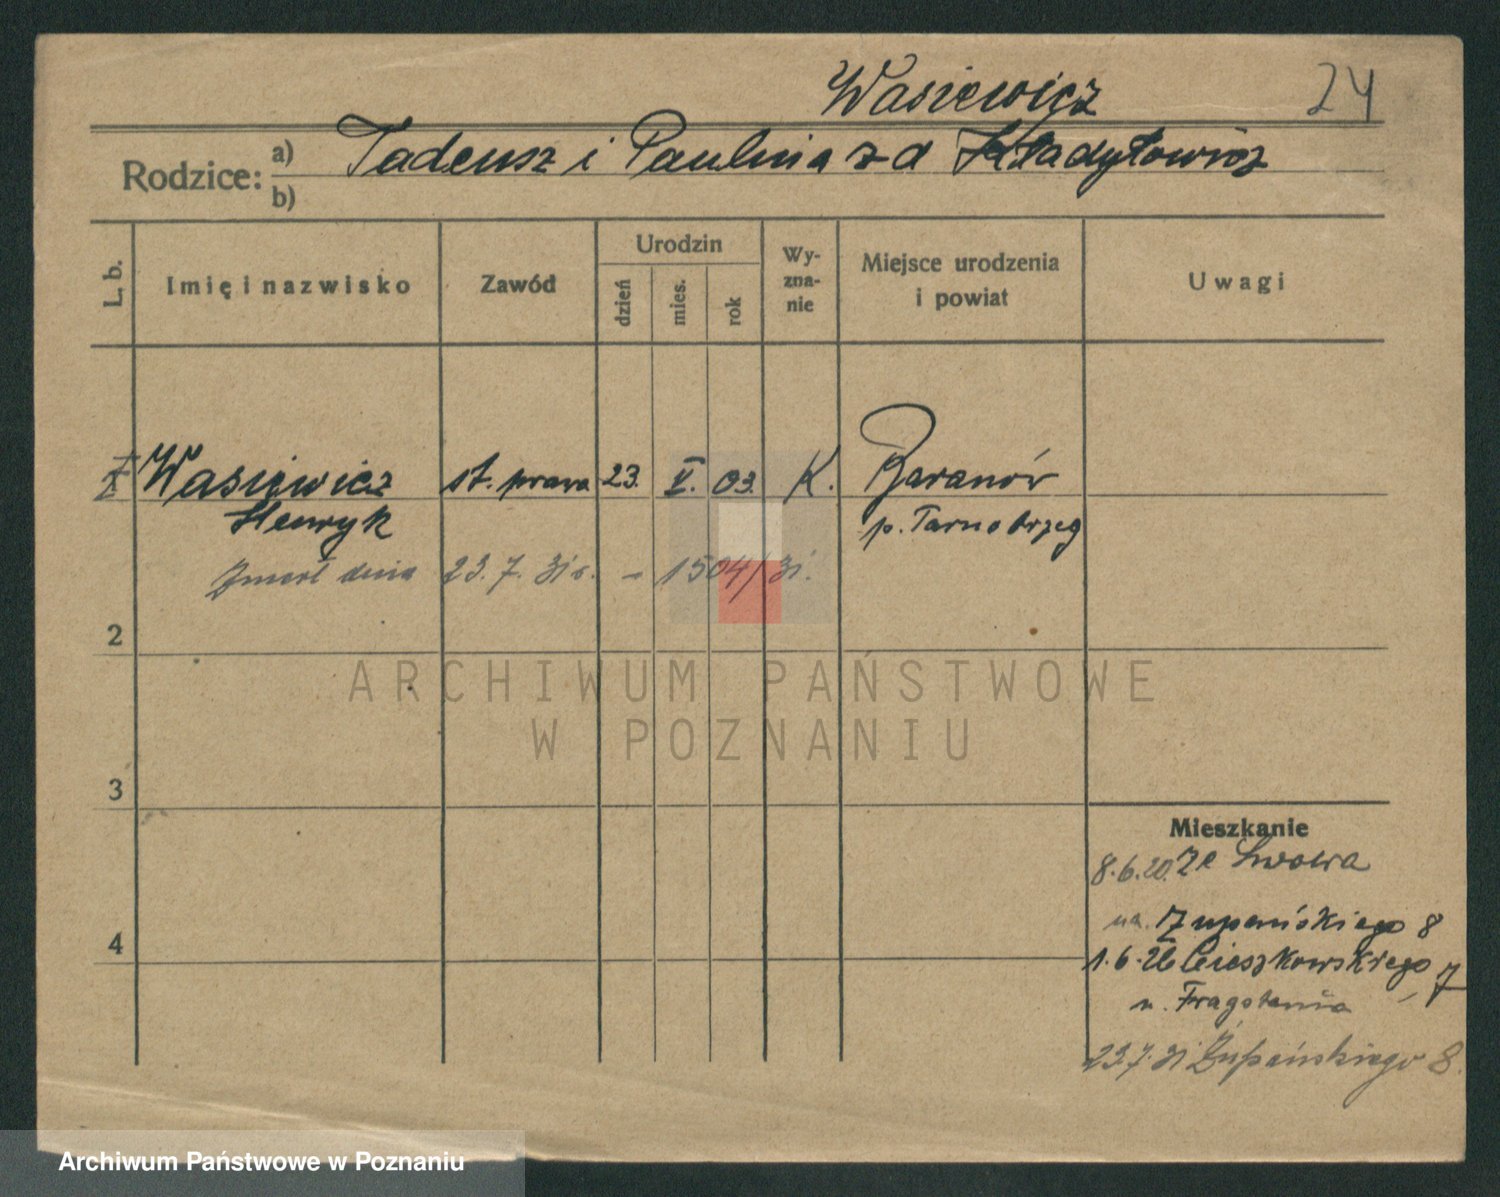 Wasiewicz
24
Rodzice: a) Tadeusz i Paulina z d Kładyłowicz
b)
L. b.
Imię i nazwisko
Zawód
Urodzin
dzień
mies.
rok
Wy-
zna-
nie
Miejsce urodzenia
i powiat
Uwagi
Wasiewicz st. prawa 23. V. 03. K. Baranów
Henryk p. Tarnobrzeg
Zmarł dnia 23. 7. 31 r. – 1504/31.
2
ARCHIWUM PAŃSTWOWE
W POZNANIU
3
Mieszkanie
8.6.20. Ze Lwowa
na. Żupańskiego 8
4
1.6.26 Cieszkowskiego 7
u.
23.7.31 Żupańskiego 8.
Archiwum Państwowe w Poznaniu